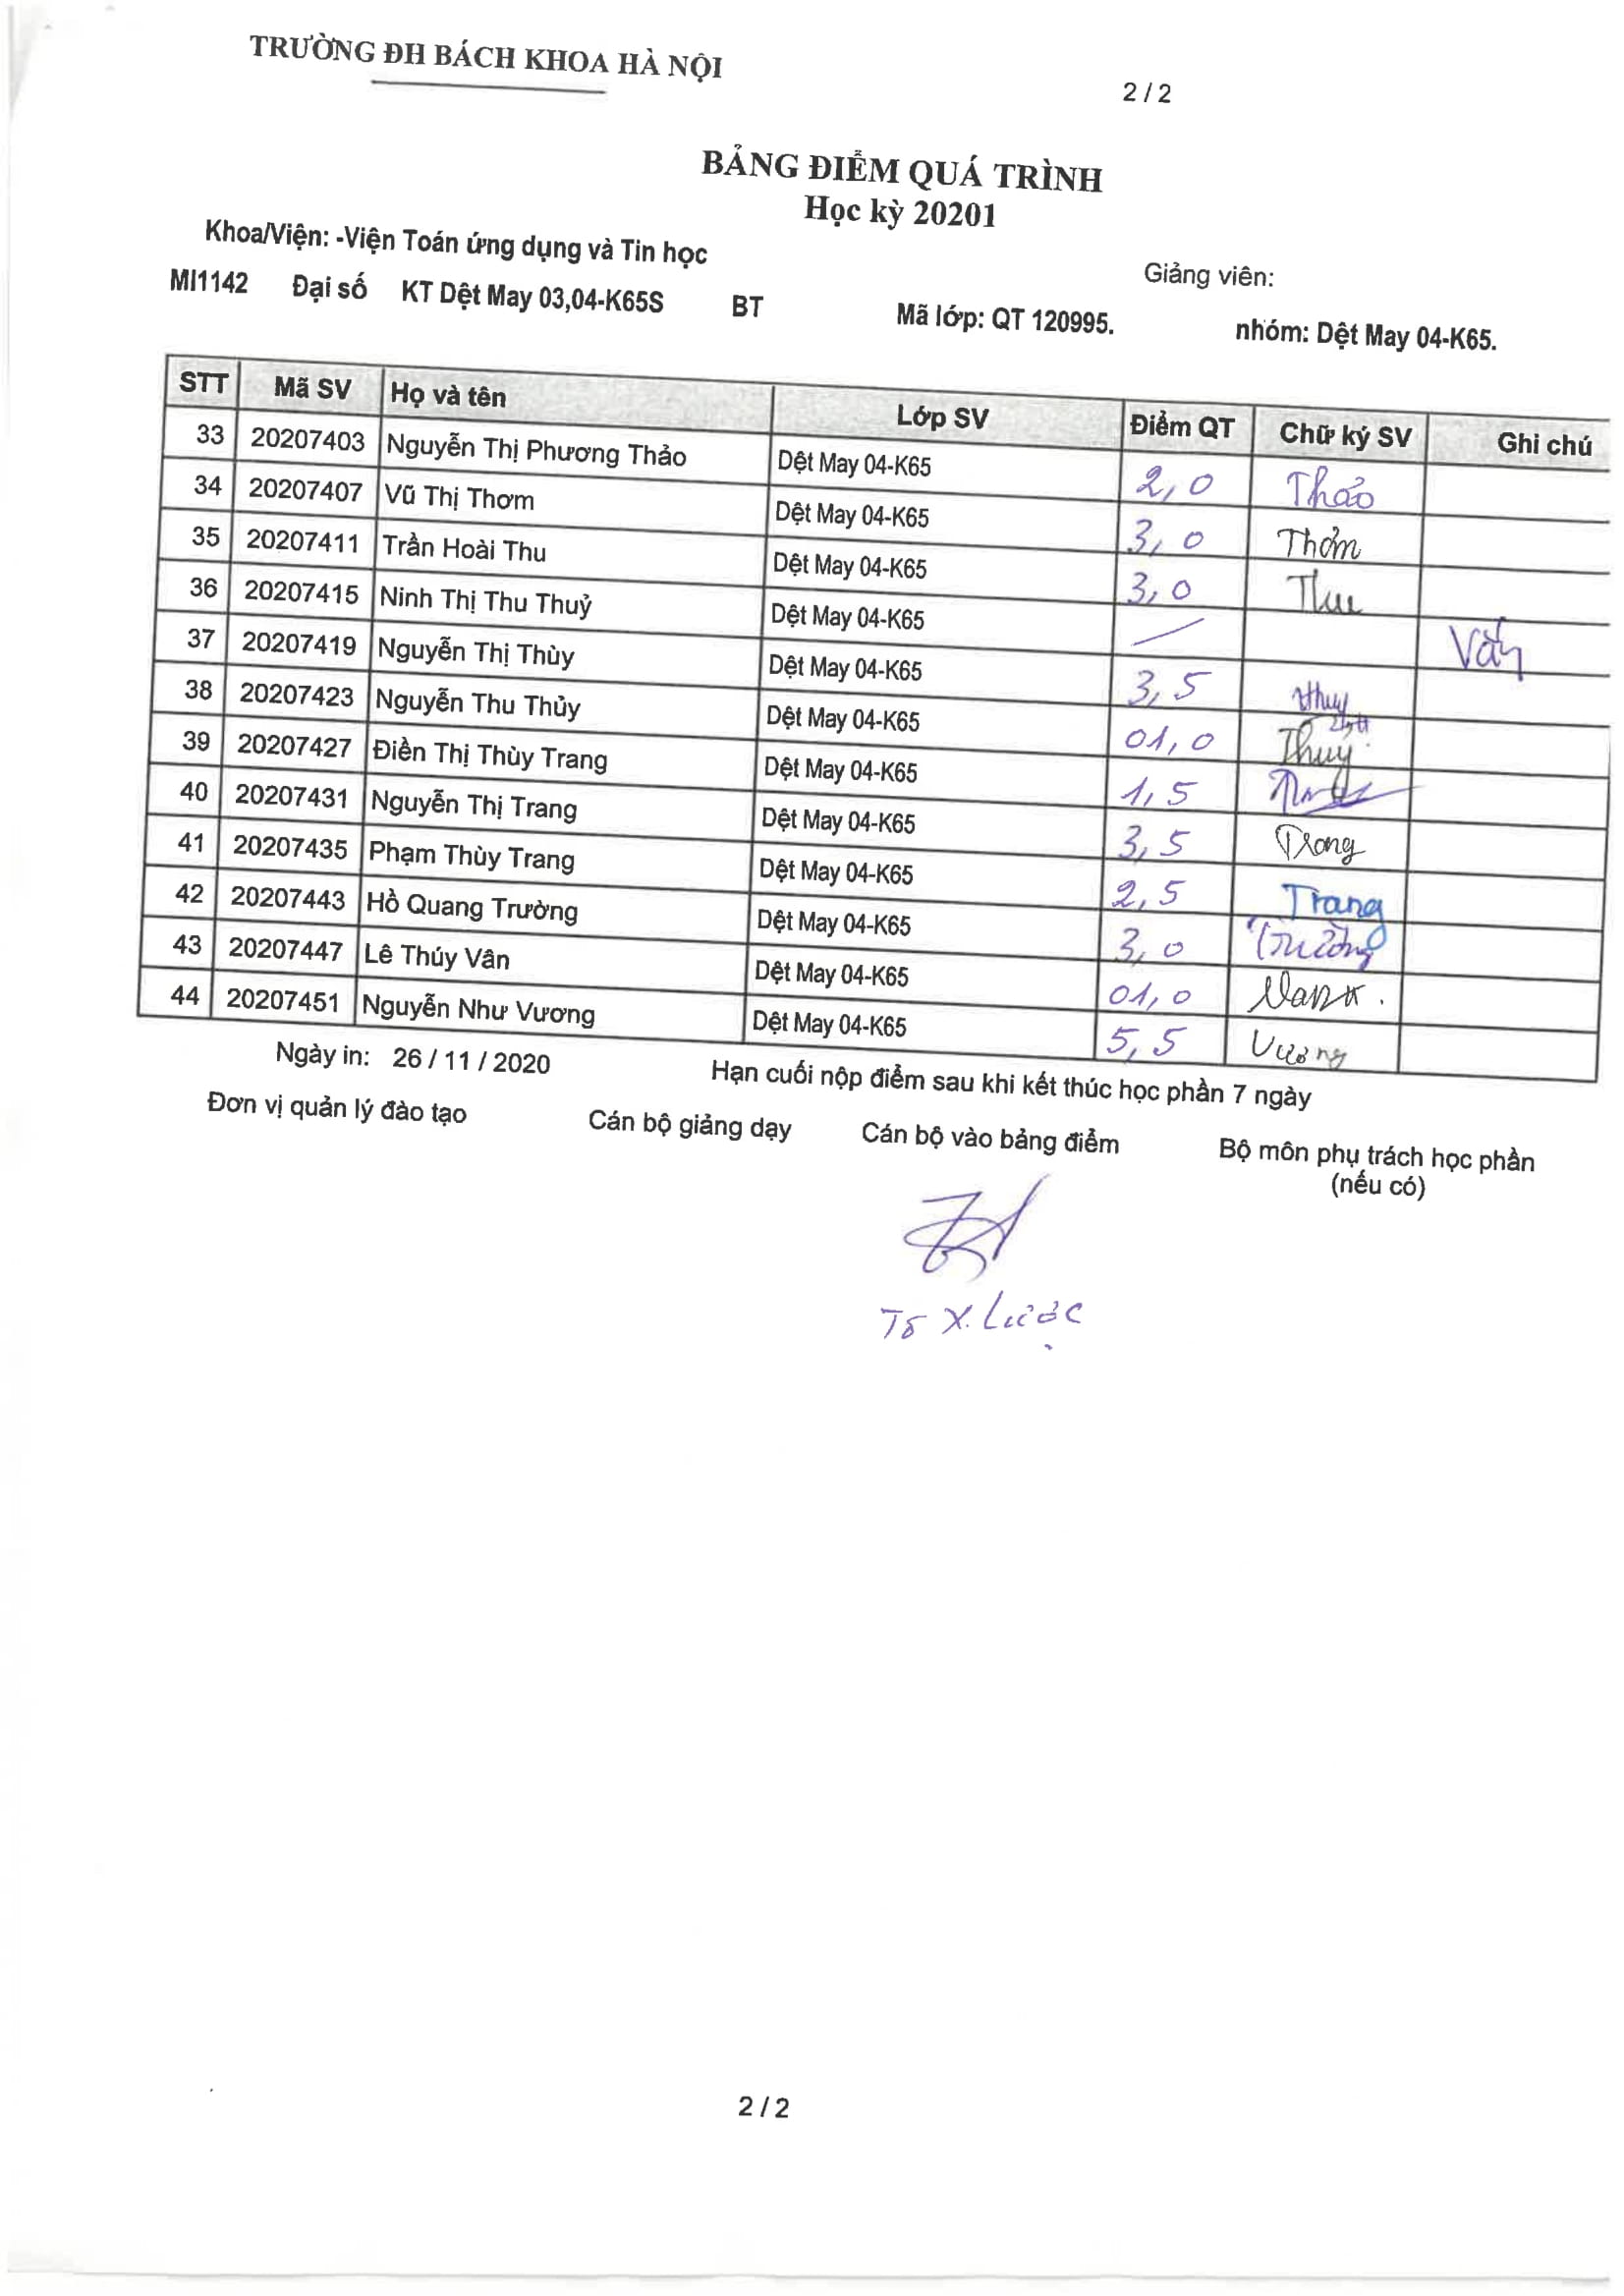 TRƯỜNG ĐH BÁCH KHOA HÀ NỘI
2 / 2
BẢNG ĐIỂM QUÁ TRÌNH
Học kỳ 20201
Khoa/Viện: -Viện Toán ứng dụng và Tin học
Giảng viên:
MI1142 Đại số KT Dệt May 03,04-K65S BT Mã lớp: QT 120995. nhóm: Dệt May 04-K65.
STT Mã SV Họ và tên Lớp SV Điểm QT Chữ ký SV Ghi chú
33 20207403 Nguyễn Thị Phương Thảo Dệt May 04-K65 2,0 Thảo
34 20207407 Vũ Thị Thơm Dệt May 04-K65 3,0 Thơm
35 20207411 Trần Hoài Thu Dệt May 04-K65 3,0 Thu
36 20207415 Ninh Thị Thu Thuỷ Dệt May 04-K65 — Vắng
37 20207419 Nguyễn Thị Thùy Dệt May 04-K65 3,5 thuy
38 20207423 Nguyễn Thu Thủy Dệt May 04-K65 01,0 Thuý
39 20207427 Điền Thị Thùy Trang Dệt May 04-K65 1,5
40 20207431 Nguyễn Thị Trang Dệt May 04-K65 3,5 Trang
41 20207435 Phạm Thùy Trang Dệt May 04-K65 2,5 Trang
42 20207443 Hồ Quang Trường Dệt May 04-K65 3,0 Trường
43 20207447 Lê Thúy Vân Dệt May 04-K65 01,0
44 20207451 Nguyễn Như Vương Dệt May 04-K65 5,5 Vương
Ngày in: 26 / 11 / 2020 Hạn cuối nộp điểm sau khi kết thúc học phần 7 ngày
Đơn vị quản lý đào tạo Cán bộ giảng dạy Cán bộ vào bảng điểm Bộ môn phụ trách học phần
(nếu có)
X. Lược
2 / 2